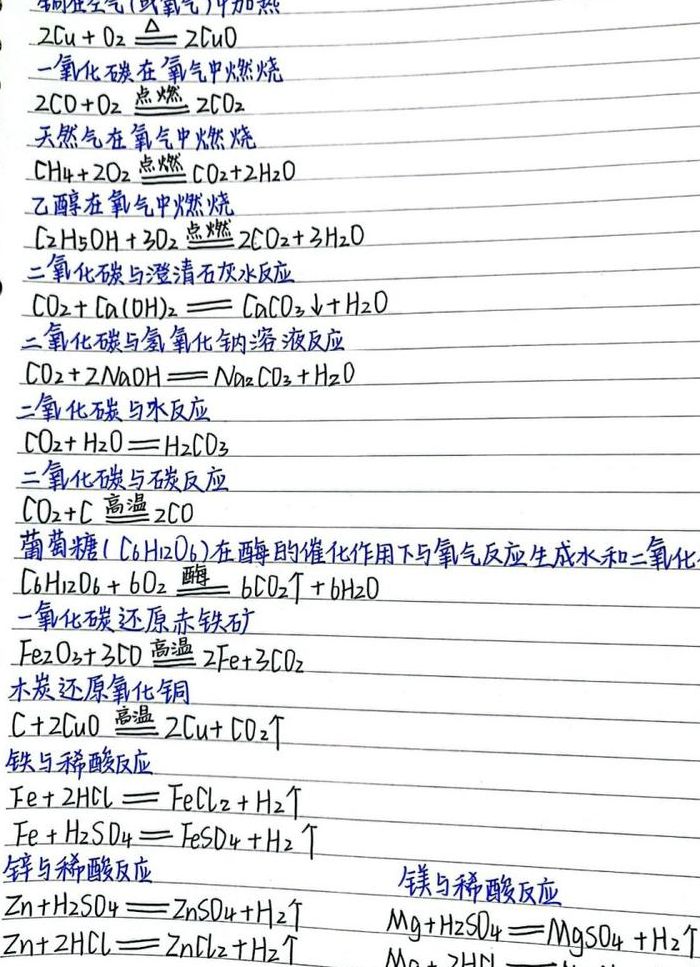 铜在空气(或氧气)中加热
2Cu + O₂ ══△══ 2CuO
一氧化碳在氧气中燃烧
2CO + O₂ ══点燃══ 2CO₂
天然气在氧气中燃烧
CH₄ + 2O₂ ══点燃══ CO₂ + 2H₂O
乙醇在氧气中燃烧
C₂H₅OH + 3O₂ ══点燃══ 2CO₂ + 3H₂O
二氧化碳与澄清石灰水反应
CO₂ + Ca(OH)₂ ══ CaCO₃↓ + H₂O
二氧化碳与氢氧化钠溶液反应
CO₂ + 2NaOH ══ Na₂CO₃ + H₂O
二氧化碳与水反应
CO₂ + H₂O ══ H₂CO₃
二氧化碳与碳反应
CO₂ + C ══高温══ 2CO
葡萄糖(C₆H₁₂O₆)在酶的催化作用下与氧气反应生成水和二氧化
C₆H₁₂O₆ + 6O₂ ══酶══ 6CO₂↑ + 6H₂O
一氧化碳还原赤铁矿
Fe₂O₃ + 3CO ══高温══ 2Fe + 3CO₂
木炭还原氧化铜
C + 2CuO ══高温══ 2Cu + CO₂↑
铁与稀酸反应
Fe + 2HCl ══ FeCl₂ + H₂↑
Fe + H₂SO₄ ══ FeSO₄ + H₂↑
锌与稀酸反应
Zn + H₂SO₄ ══ ZnSO₄ + H₂↑
Zn + 2HCl ══ ZnCl₂ + H₂↑
镁与稀酸反应
Mg + H₂SO₄ ══ MgSO₄ + H₂↑
Mg + 2HCl ══